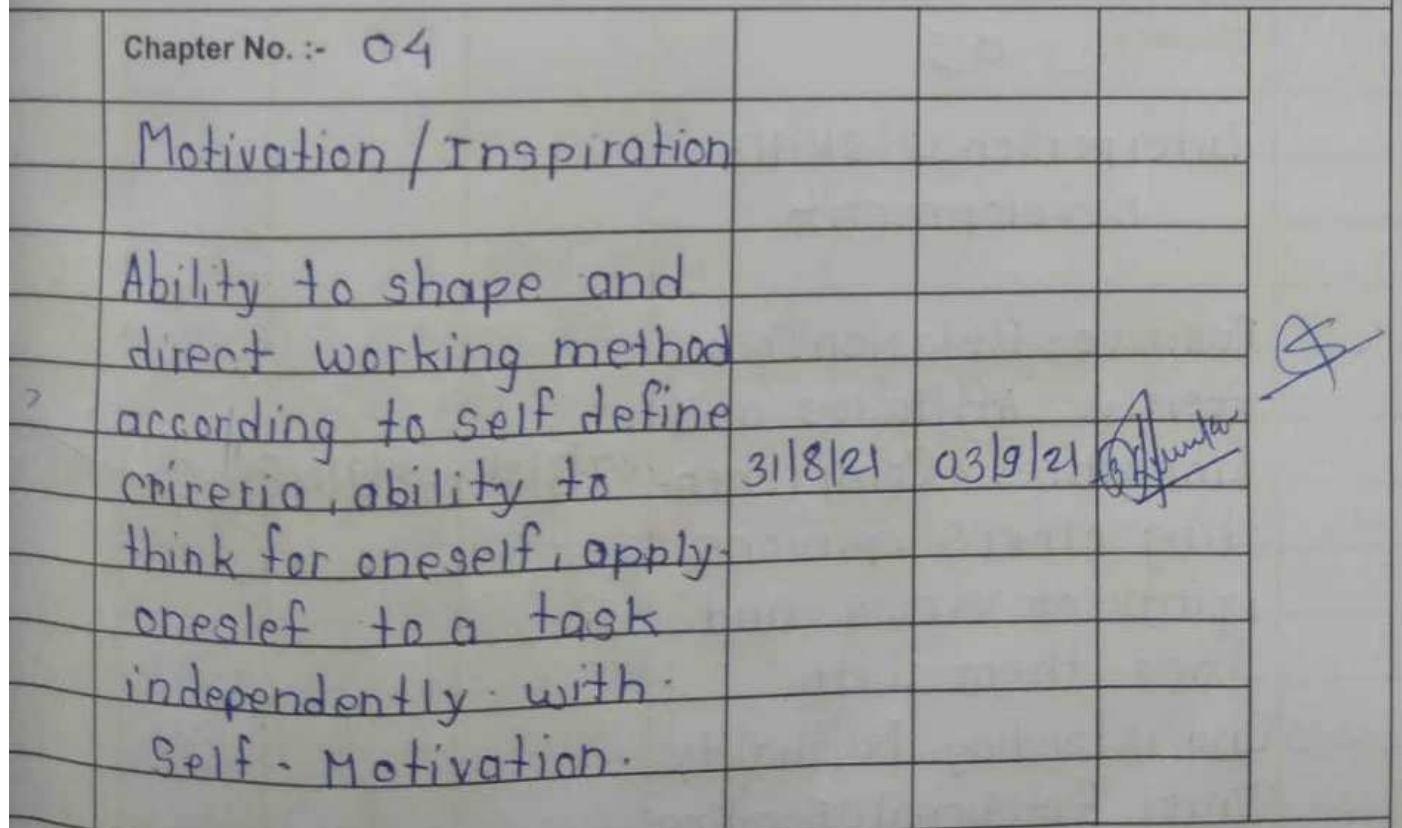 Chapter No. :- 04
Motivation / Inspiration
Ability to shape and
direct working method
according to self define
crireria, ability to
think for oneself, apply
oneslef to a task
independently with
Self - Motivation.
31/8/21 03/9/21